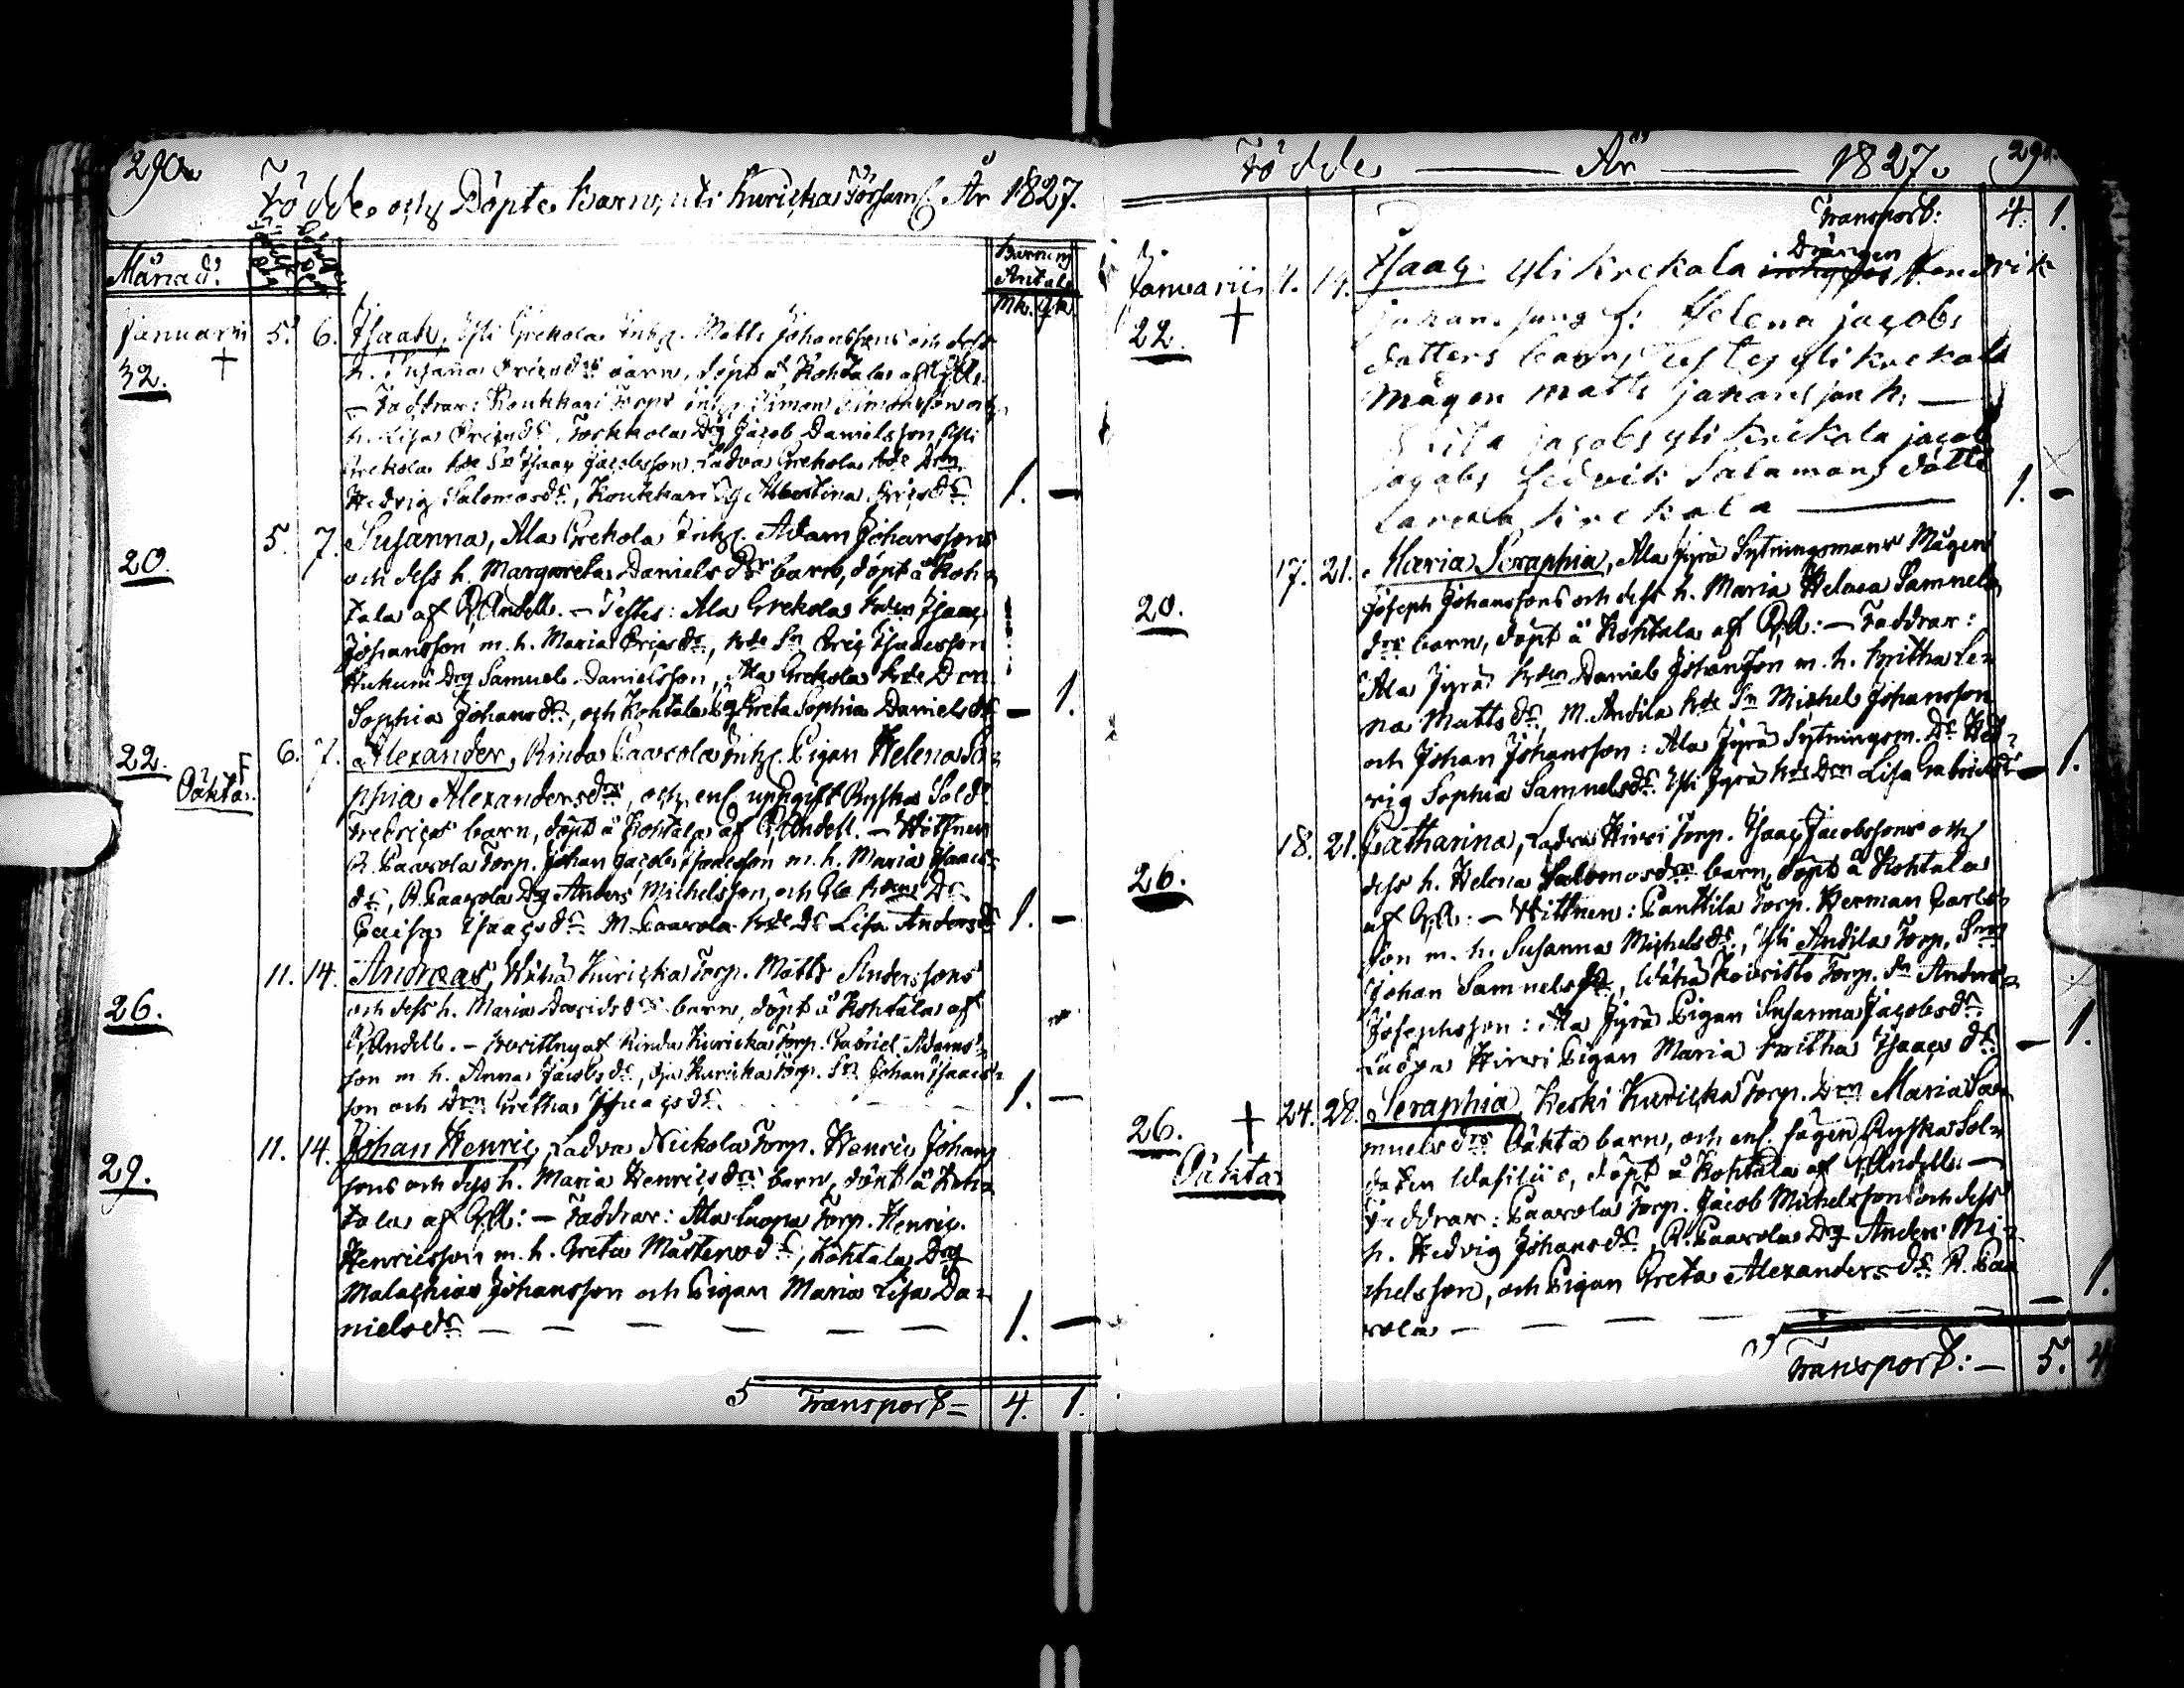 290.
Födde och Döpte Barn, uti Kuricka Församl. År 1827.
Månad.
Barnens Antal
Mk. Qk.
Januarii 5. 6. Isaak, Yli Grekola Inhs. Matts Johanssons och dess
32. † h. Susanna Ericsdrs barn, döpt å Kohtala af
— Faddrar: Koukkari Torp. inhs. Simon Simonsson och
h. Lisa Ericsdr, Dg Jacob Danielsson, Yli
Grekola Bde Sn Isaac Jacobsson, Ladva Grekola Bde Drn
Hedvig Salomosdr, Koukkari Pig Albertina Ericsdr 1. —
20. 5. 7. Susanna, Ala Grekola Inhs. Adam Johanssons
och dess h. Margareta Daniels Drs barn, döpt å Koh=
tala af Andell. — Testes: Ala Grekola Isaac
Johansson m. h. Maria Ericsdr, Bde Sn Eric Isaacsson
Dg Samuel Danielsson, Ala Grekola Bde Drn
Sophia Johansdr, och Kohtala Pg Greta Sophia Danielsdr — 1.
22. Oäkta. 6. 7. Alexander, Rinda Paavola Inhs. Pigan Helena So=
phia Alexandersdrs, och enl. uppgift Ryska Sold.
barn, döpt å Kohtala af Andell. — Wittnen
R. Paavola Torp. Johan Jacob Isaacsson m. h. Maria Isaacs=
dr, R. Paavola Dg Anders Michelsson, och Dr
Caisa Isaacsdr M. Paavola Bde Dr Lisa Andersdr 1. —
26. 11. 14. Andreas, Kuricka Torp. Matts Anderssons
och dess h. Maria Davidsdrs barn, döpt å Kohtala af
Andell. — Rinda Kuricka Torp. Gabriel Adams=
son m. h. Anna Jacobsdr, Kuricka Torp. Sn Johan Isaacs=
son och Drn Gretha Isaacsdr. 1. —
29. 11. 14. Johan Henric, Ladva Nickola Torp. Henric Johans
sons och dess h. Maria Henricsdrs barn, döpt å Koh=
tala af A: — Faddrar: Ala Luopa Torp. Henric
Henricsson m. h. Greta Mårtensdr, Kohtala Dg
Malachias Johansson och Pigan Maria Lisa Da=
nielsdr — — — — — — 1. —
Transport = 4. 1.
Födde — År — 1827. 291.
Transport: 4. 1.
Januarii 11. 14. Isaac yli krekola Drängen Hendrik
22. † johans sons h: Helena jacobs
dotters barn, Testes yli krekola
mågen matts johansson h: —
jacobs yli krekola jacob
jacobs hedvik Salamons dotte
krekola — 1. —
20. 17. 21. Maria Seraphia, Ala Jyrä Sytningsmans Mågen
Joseph Johanssons och dess h. Maria Helena Samuels
drs barn, döpt å Kohtala af A: — Faddrar:
Ala Jyrä Daniel Johansson m. h. Britha Le=
na Mattsdr, M. Andila Bde Sn Michel Johansson
och Johan Johansson: Ala Jyrä Sytningsm. Dr Hed=
vig Sophia Samuelsdr. Yli Jyrä Bds Drn Lisa Gabrielsdr — 1.
26. 18. 21. Catharina, Ladva Hirvi Torp. Isaac Jacobssons och
dess h. Helena Salomosdrs barn, döpt å Kohtala
af A: — Wittnen: Panttila Torp. Herman Carls=
son m. h. Susanna Michelsdr, Yli Andila Torp. Sn
Johan Samuelsson, Koivisto Torp. Sn Anders
Josephsson: Ala Jyrä Pigan Susanna Jacobsdr.
Luopa Hirvi Pigan Maria Britha Isaacs dr — 1.
26. † Oäkta 24. 28. Seraphia, Keski Kuricka Torp. Drn Maria Sa=
muelsdrs Oäkta barn, och enl. sägen Ryska Sol=
daten döpt å Kohtala af Andell: —
Faddrar: Paavola Torp. Jacob Michelssons och dess
h. Hedvig Johansdr, R. Paavola Dg Anders Mi=
chelsson, och Pigan Greta Alexandersdr R. Paa
vola — — — — — 1.
Transport: — 5. 4